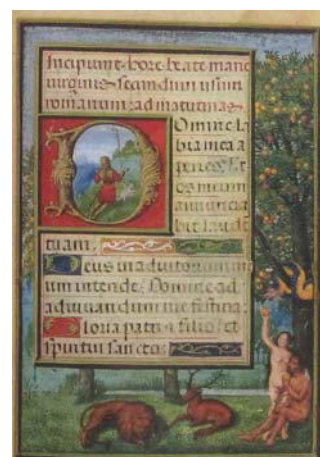 Incipiunt hore beate marie
virginis secundum usum
romanum: ad matutinas
Domine la
bia mea a
peries. Et
os meum
annuncia
bit laudē
tuam:
Deus in adiutorium me
um intende: Domine ad
adiuuandum me festina:
Gloria patri & filio: et
spiritui sancto: